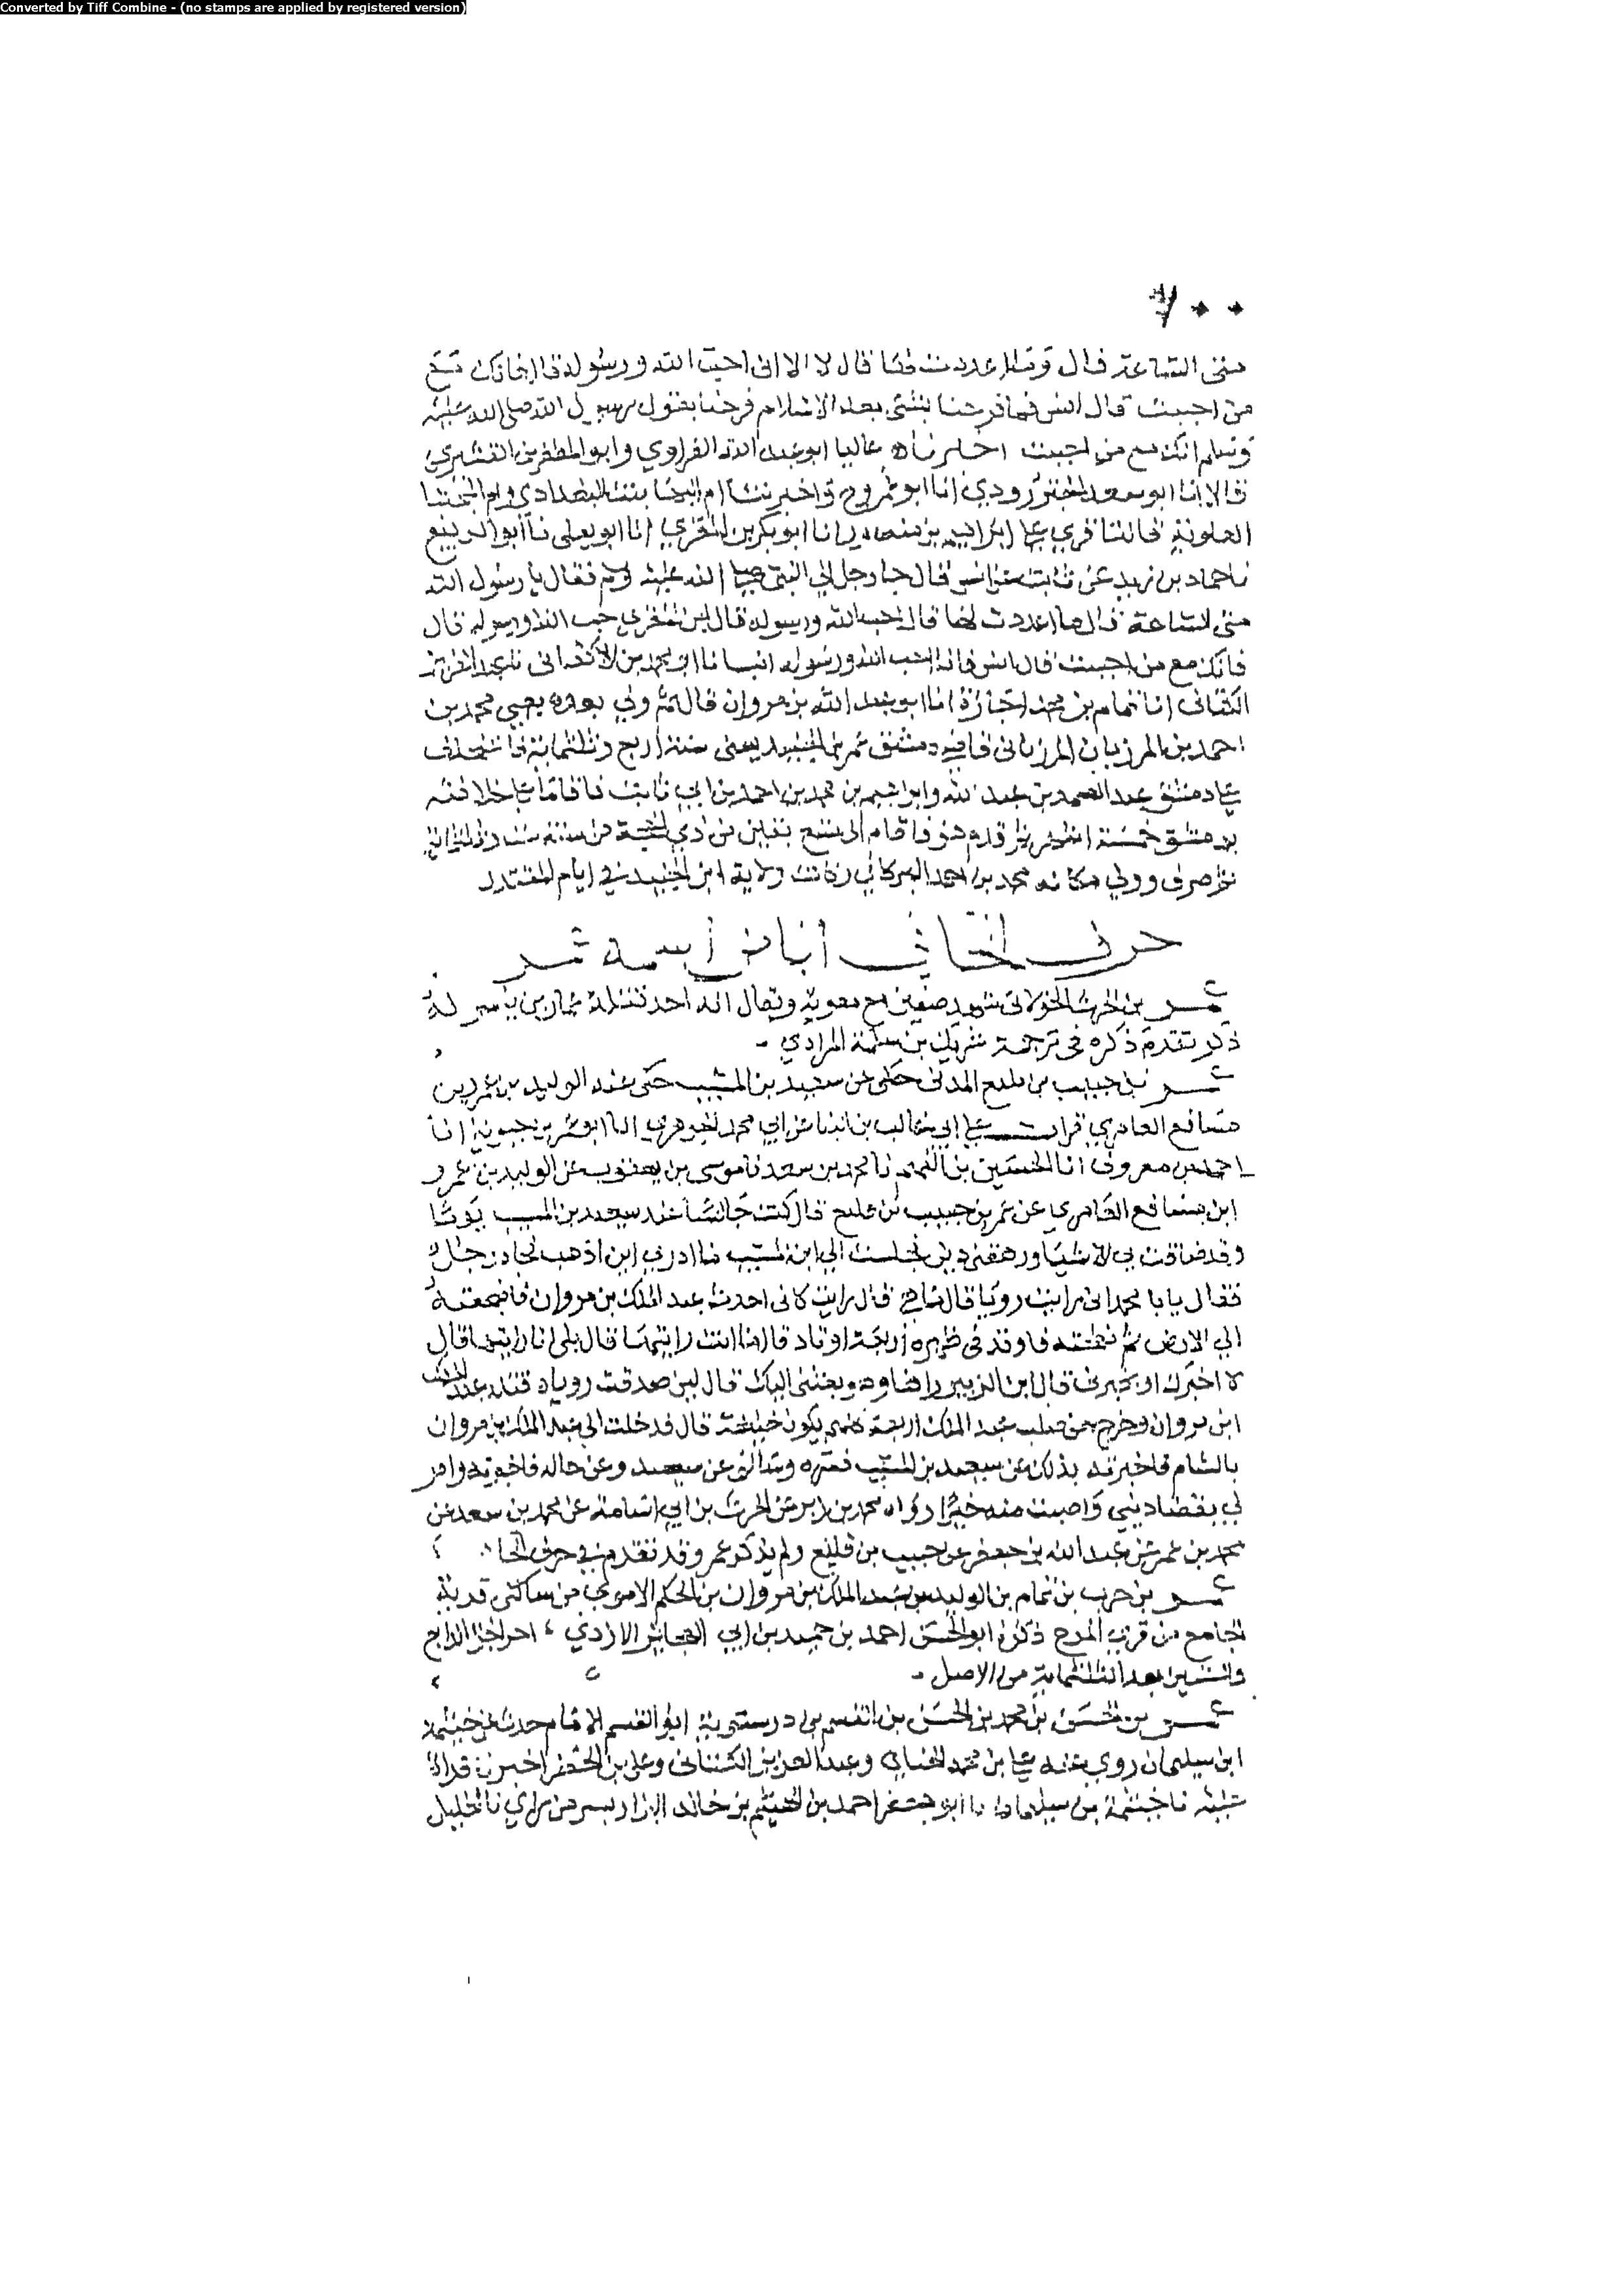 Converted by Tiff Combine - (no stamps are applied by registered version)
٧٠٠
متى الساعة قال وما اعددت لها قال لا الا انى احب الله ورسوله قال فانك مع
من احببت قال انس فما فرحنا بشى بعد الاسلام فرحنا بقول رسول الله صلى الله عليه
وسلم انك مع من احببت اخبرناه عاليا ابو عبد الله الفراوي وابو المظفر بن القشيري
قالا انا ابو سعد الجنزرودي انا ابو عمرو ح واخبرتنا ام البها بنت البغدادي وام المجتبا
العلوية قالتا قري على ابراهيم بن منصور انا ابو بكر بن المقري انا ابو يعلى نا ابو الربيع
نا حماد بن زيد عن ثابت عن انس قال جا رجل الى النبي صلى الله عليه وسلم فقال يا رسول الله
متى الساعة قال ما اعددت لها قال احب الله ورسوله قال ابن المقري حب الله ورسوله قال
فانك مع من احببت قال انس فانا احب الله ورسوله انبانا ابو محمد بن الاكفانى نا عبد العزيز
الكتانى انا تمام بن محمد اجازة انا ابو عبد الله بن مروان قال ثم ولي بعده يعني محمد بن
احمد بن المرزبان المرزبانى قاضيا دمشق عمر بن الجنيد يعنى سنة اربع وثلثمائة فاستخلف
على دمشق عبد الصمد بن عبد الله وابراهيم بن محمد بن احمد بن ابي ثابت فاقاما على خلافته
بدمشق خمسة اشهر ثم قدم هو فاقام الى تسع بقين من ذي الحجة من سنة ست وثلثمائة
ثم صرف وولي مكانه محمد بن احمد البركاني وكانت ولاية ابن الجنيد في ايام المقتدر
حرف الحا في ابا من اسمه عمر
عمر بن الحرث الخولانى شهد صفين مع معوية ويقال انه احد قتلة عمار بن ياسر له
ذكر تقدم ذكره فى ترجمة شريك بن سلمة المرادي
عمر بن حبيب بن قليع المدنى حكى عن سعيد بن المسيب حكى عنه الوليد بن عمرو بن
مسافع العامري قرات على ابي غالب بن البنا عن ابي محمد الجوهري انا ابو عمر بن حيوية انا
احمد بن معروف انا الحسين بن الفهم نا محمد بن سعد نا موسى بن يعقوب عن الوليد بن عمرو
ابن مسافع العامري عن عمر بن حبيب بن قليع قال كنت جالسا عند سعيد بن المسيب يوما
وقد ضاقت بي الاشيا ورهقنى دين فجلست الى ابن المسيب ما ادري اين اذهب فجاه رجل
فقال يا با محمد انى رايت رويا قال ما هي قال رايت كانى اخذت عبد الملك بن مروان فاضجعته
الي الارض ثم بطحته فاوتدت في ظهره اربعة اوتاد قال ما انت رايتها قال بلى انا رايتها قال
لا اخبرك او تخبرنى قال ابن الزبير راها وهو بعثنى اليك قال لين صدقت روياه قتله عبد الملك
ابن مروان وخرج من صلب عبد الملك اربعة كلهم يكون خليفة قال فدخلت الى عبد الملك بن مروان
بالشام فاخبرته بذلك عن سعيد بن المسيب فسره وسالنى عن سعيد وعن حاله فاخبرته وامر
لي بقضا دينى واصبت منه خيرا رواه غيره عن الحرث بن ابي اسامة عن محمد بن سعد عن
محمد بن عمر عن عبد الله بن جعفر عن حبيب بن قليع ولم يذكر عمر وقد تقدم في حرف الحا
عمر بن حرب بن تمام بن الوليد بن عبد الملك بن مروان بن الحكم الاموي من ساكنى قرية
الجامع من قرى المرج ذكره ابو الحسن احمد بن حميد بن ابي العجائز الازدي اخر الجزا الرابع
والستين بعد الثلثمائة من الاصل
عمر بن الحسن بن محمد بن الحسن بن القسم بن درستوية ابو القسم الامام حدث عن خيثمة
ابن سليمان روى عنه علي بن محمد الحنائى وعبد العزيز الكتانى وعلى بن الخضر اخبرنا قراة
عليه نا خيثمة بن سليمان نا ابو جعفر احمد بن الهيثم بن خالد البزار بسر من راي نا الجليل